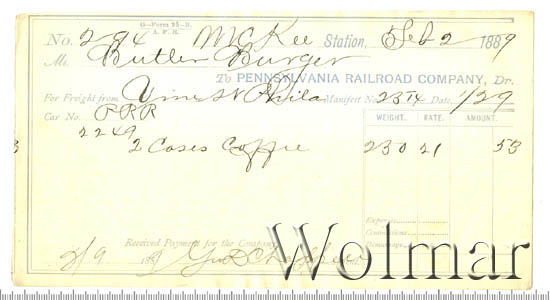 G—Form 25—B.
A. F. R.
No. 294 McKee Station, Feb 2 1889
M Butler Burger
To PENNSYLVANIA RAILROAD COMPANY, Dr.
For Freight from Vine St Phila Manifest No. 23 Date, 1/29
Car No. PRR
2249
WEIGHT. RATE. AMOUNT.
2 Cases Coffee 230 21 53
Expenses
Demurrage
Received Payment for the Company
2/9 188
Wolmar